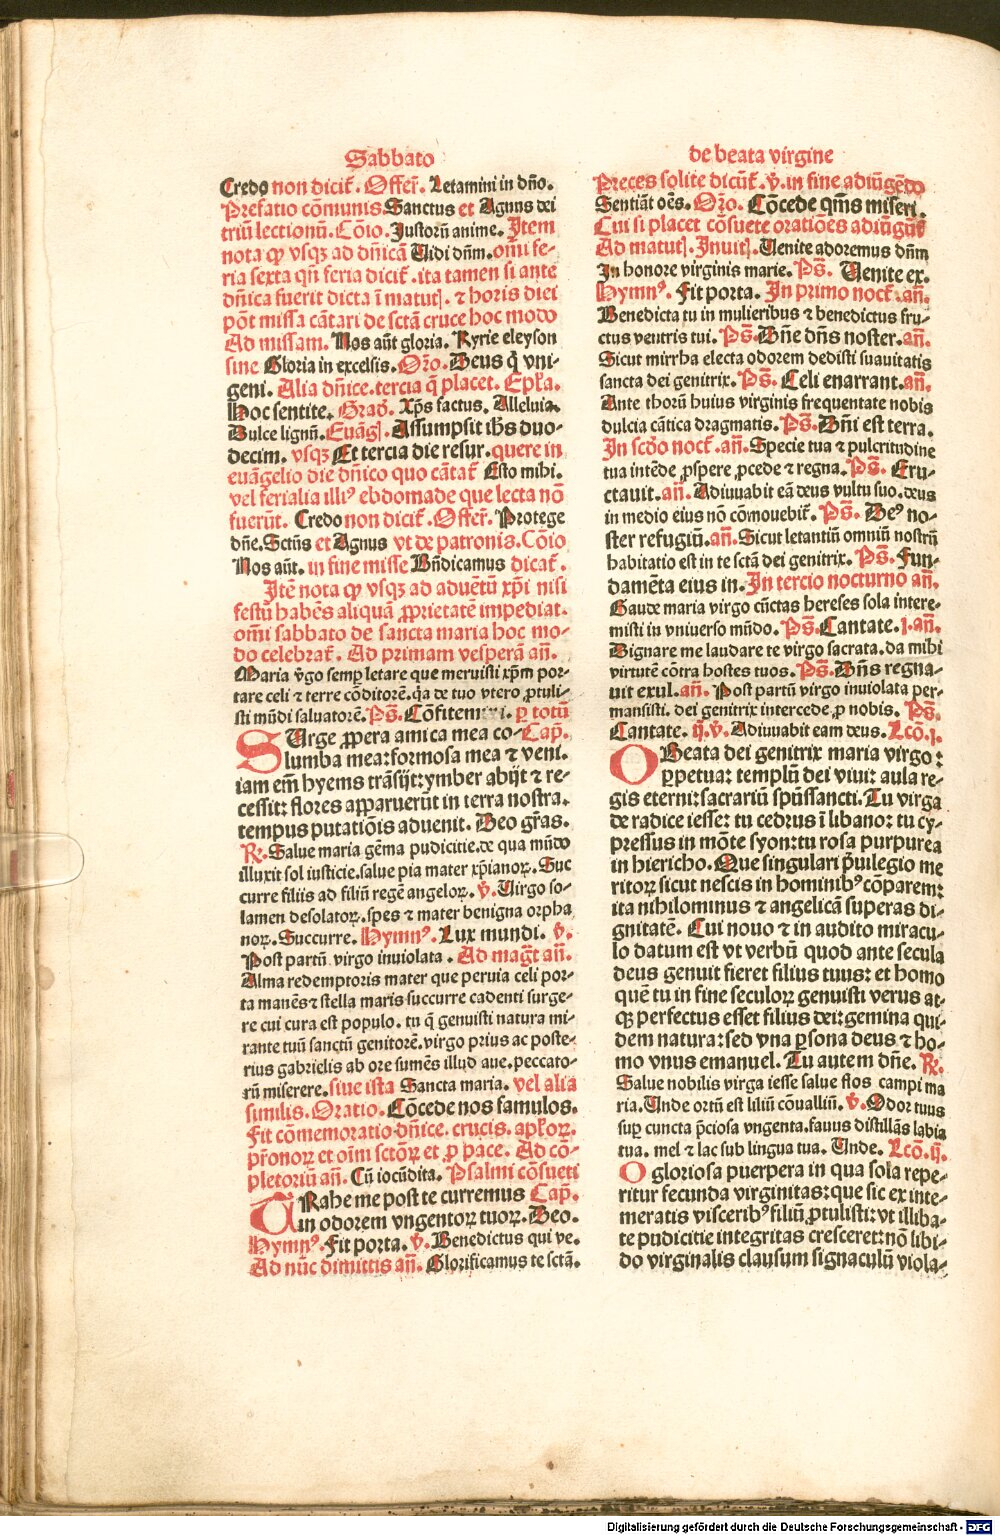 Sabbato
Credo non dicit᷑. Offer᷑. Letamini in dño.
Prefatio cõmunis. Sanctus et Agnus dei
triũ lectionũ. Cõio. Justorũ anime. Item
nota ꝙ vsqꝫ ad dñicã Vidi dñm. om̃i fe-
ria sexta qñ feria dicit᷑. ita tamen si ante
dñica fuerit dicta ĩ matutꝭ. ⁊ horis diei
põt missa cãtari de sctã cruce hoc modo
Ad missam. Nos aũt gloria. Kyrie eleyson
sine Gloria in excelsis. Orõ. Deus q̇ vni-
geni. Alia dñice. tercia q̃ placet. Epl̃a.
Hoc sentite. Grad᷑. Xp̃s factus. Alleluia.
Dulce lignũ. Euãgꝭ. Assumpsit ih̃s duo-
decim. vsqꝫ Et tercia die resur. quere in
euãgelio die dñico quo cãtat᷑ Esto mihi.
vel ferialia illi⁹ ebdomade que lecta nõ
fuerũt. Credo non dicit᷑. Offer᷑. Protege
dñe. Sctũs et Agnus vt de patronis. Cõio
Nos aũt. in fine misse Bñdicamus dicat᷑.
Itẽ nota ꝙ vsqꝫ ad aduẽtũ xp̃i nisi
festũ habẽs aliquã ꝓprietatẽ impediat.
om̃i sabbato de sancta maria hoc mo-
do celebrat᷑. Ad primam vesperã añ.
Maria v̇go semꝑ letare que meruisti xp̃m por-
tare celi ⁊ terre cõditorẽ. q̇a de tuo vtero ꝓtuli-
sti mũdi saluatorẽ. Ps̃. Cõfitemini. ꝑ totũ
SUrge ꝓpera amica mea co- Cap̃.
lumba mea: formosa mea ⁊ veni.
iam em̃ hyems trãsijt: ymber abijt ⁊ re-
cessit: flores apparuerũt in terra nostra.
tempus putatiõis aduenit. Deo gr̃as.
℟. Salue maria gẽma pudicitie. de qua mũdo
illuxit sol iusticie. salue pia mater xp̃ianoꝝ. Suc
curre filiis ad filiũ regẽ angeloꝝ. ℣. Uirgo so-
lamen desolatoꝝ. spes ⁊ mater benigna orpha
noꝝ. Succurre. Hymn⁹. Lux mundi. ℣.
Post partũ virgo inuiolata. Ad mag̃t añ.
Alma redemptoris mater que peruia celi por-
ta manẽs ⁊ stella maris succurre cadenti surge-
re cui cura est populo. tu q̃ genuisti natura mi-
rante tuũ sanctũ genitorẽ. virgo prius ac poste-
rius gabrielis ab ore sumẽs illud aue. peccato-
rũ miserere. siue ista Sancta maria. vel alia
similis. Oratio. Cõcede nos famulos.
Fit cõmemoratio dñice. crucis. apl̃oꝝ.
pr̃onoꝝ et oĩm sctõꝝ et ꝓ pace. Ad cõ-
pletoriũ añ. Cũ iocũdita. Psalmi cõsueti
TRahe me post te curremus Cap̃.
in odorem vngentoꝝ tuoꝝ. Deo.
Hymn⁹. Fit porta. ℣. Benedictus qui ve.
Ad nũc dimittis añ. Glorificamus te sctã.
de beata virgine
Preces solite dicũt᷑. ℣. in fine adiũgẽdo
Sentiãt oẽs. Orõ. Cõcede qm̃s miseri.
Cui si placet cõsuete oratiões adiũgũt᷑
Ad matutꝭ. Inuitꝭ. Uenite adoremus dñm
In honore virginis marie. Ps̃. Uenite ex.
Hymn⁹. Fit porta. In primo noct᷑. añ.
Benedicta tu in mulieribus ⁊ benedictus fru-
ctus ventris tui. Ps̃. Dñe dñs noster. añ.
Sicut mirrha electa odorem dedisti suauitatis
sancta dei genitrix. Ps̃. Celi enarrant. añ.
Ante thorũ huius virginis frequentate nobis
dulcia cãtica dragmatis. Ps̃. Dñi est terra.
In scðo noct᷑. añ. Specie tua ⁊ pulcritudine
tua intẽde ꝓspere ꝓcede ⁊ regna. Ps̃. Eru-
ctauit. añ. Adiuuabit eã deus vultu suo. deus
in medio eius nõ cõmouebit᷑. Ps̃. De⁹ no-
ster refugiũ. añ. Sicut letantiũ omniũ nostrũ
habitatio est in te sctã dei genitrix. Ps̃. Fun-
damẽta eius in. In tercio nocturno añ.
Gaude maria virgo cũctas hereses sola intere-
misti in vniuerso mũdo. Ps̃. Cantate. j. añ.
Dignare me laudare te virgo sacrata. da mihi
virtutẽ cõtra hostes tuos. Ps̃. Dñs regna-
uit exul. añ. Post partũ virgo inuiolata per-
mansisti. dei genitrix intercede ꝓ nobis. Ps̃.
Cantate. ij. ℣. Adiuuabit eam deus. Lcõ. j.
OBeata dei genitrix maria virgo:
ꝑpetua: templũ dei viui: aula re-
gis eterni: sacrariũ sp̃ũssancti. Tu virga
de radice iesse: tu cedrus ĩ libano: tu cy-
pressus in mõte syon: tu rosa purpurea
in hiericho. Que singulari p̃uilegio me
ritoꝝ sicut nescis in hominib⁹ cõparem:
ita nihilominus ⁊ angelicã superas di-
gnitatẽ. Cui nouo ⁊ in audito miracu-
lo datum est vt verbũ quod ante secula
deus genuit fieret filius tuus: et homo
quẽ tu in fine seculoꝝ genuisti verus at-
qꝫ perfectus esset filius dei: gemina qui-
dem natura: sed vna ꝑsona deus ⁊ ho-
mo vnus emanuel. Tu autem dñe. ℟.
Salue nobilis virga iesse salue flos campi ma
ria. Unde ortũ est liliũ cõualliũ. ℣. Odor tuus
suꝑ cuncta p̃ciosa vngenta. fauus distillãs labia
tua. mel ⁊ lac sub lingua tua. Unde. Lcõ. ij.
O gloriosa puerpera in qua sola repe-
ritur fecunda virginitas: que sic ex inte-
meratis visceribꝰ filiũ ꝓtulisti: vt illiba-
te pudicitie integritas cresceret: nõ libi-
do virginalis clausum signaculũ viola-
Digitalisierung gefördert durch die Deutsche Forschungsgemeinschaft - DFG